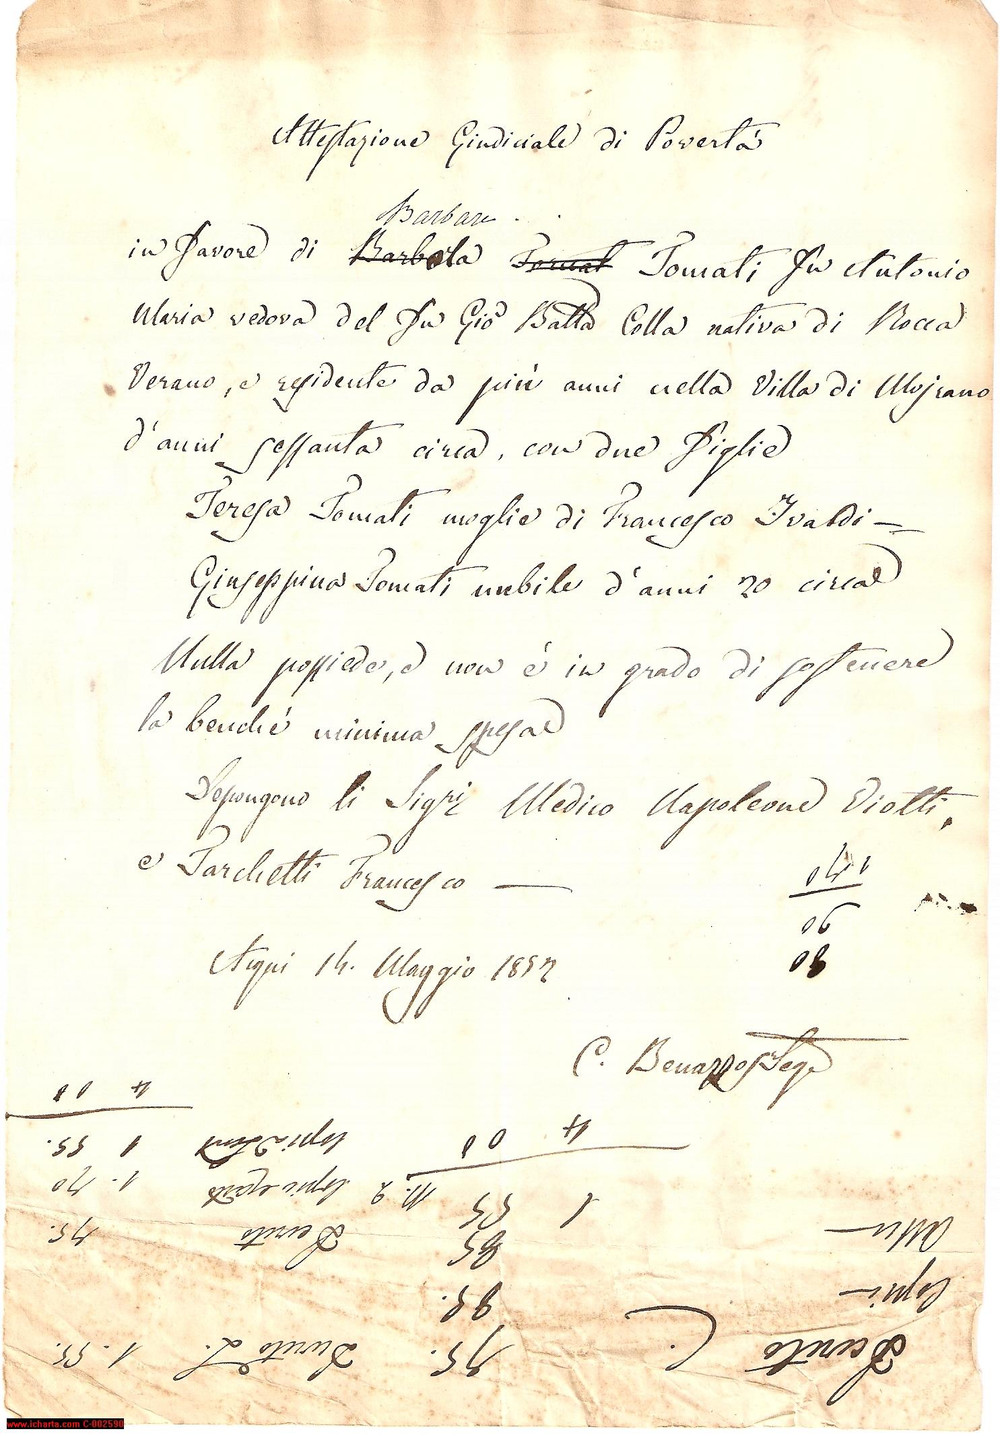 Attestazione Giudiciale di Povertà
Barbara
in Favore di Barbola Tomat Tomati Fu Antonio
Maria vedova del Fu Gio Batta Colla nativa di Rocca
Verano, e residente da più anni nella Villa di Mojrano
d'anni sessanta circa, con due Figlie
Teresa Tomati moglie di Francesco Ivaldi —
Giuseppina Tomati nubile d'anni 20 circa
Nulla possiede, e non è in grado di sostenere
la benché minima spesa
Depongono li Sigri Medico Napoleone Viotti,
e Tarchetti Francesco —
06
80
Acqui 14. Maggio 1857
C. Benazzo Seg
Decreto C. 75.
Copia — 
85
1 55
4 00
Decreto 75.
Copia 1. 70
Copia 1 55.
4 00
www.icharta.com C-002590